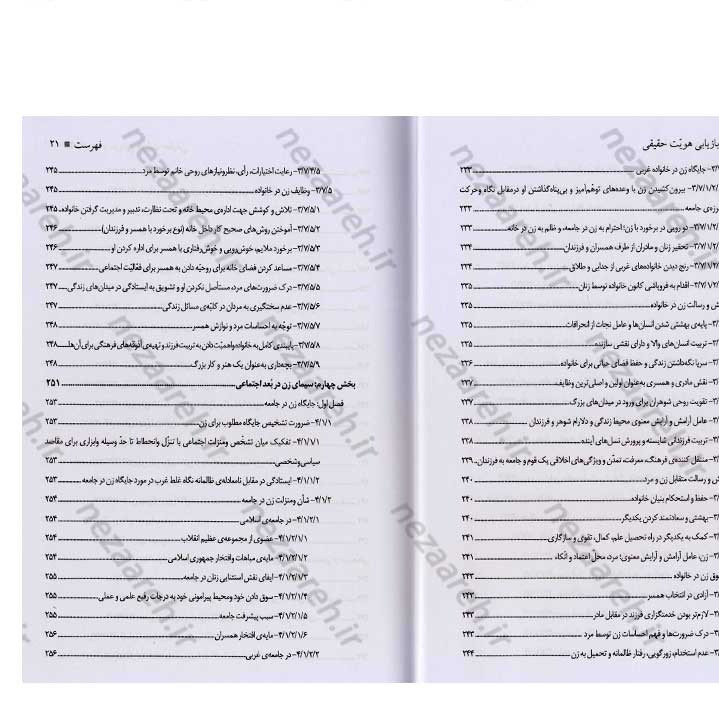 بازیابی هویّت حقیقی
جایگاه زن در خانواده غربی ۲۳۳
بیرون کشیدن زن با وعده‌های توهّم‌آمیز و بی‌پناه گذاشتن او در مقابل نگاه و حرکت
جامعه ۲۳۳
دو رویی در برخورد با زن؛ احترام به زن در جامعه، و ظلم به زن در خانه ۲۳۳
تحقیر زنان و مادران از طرف همسران و فرزندان ۲۳۴
رنج دیدن خانواده‌های غربی از جدایی و طلاق ۲۳۴
اقدام به فروپاشی کانون خانواده توسط زنان ۲۳۵
و رسالت زن در خانواده ۲۳۵
پایه‌ی بهشتی شدن انسان‌ها و عامل نجات از انحرافات ۲۳۵
تربیت انسان‌های والا و دارای نقشی سازنده ۲۳۵
سرپا نگه‌داشتن زندگی و حفظ فضای حیاتی برای خانواده ۲۳۶
نقش مادری و همسری به‌عنوان اولین و اصلی‌ترین وظایف ۲۳۷
تقویت روحی شوهران برای ورود در میدان‌های بزرگ ۲۳۷
عامل آرامش و آرایش معنوی محیط زندگی و دلارام شوهر و فرزندان ۲۳۸
تربیت فرزندانی شایسته و پرورش نسل‌های آینده ۲۳۸
منتقل کننده‌ی فرهنگ، معرفت، تمدّن و ویژگی‌های اخلاقی یک قوم و جامعه به فرزندان ۲۳۹
و رسالت متقابل زن و مرد ۲۴۰
حفظ و استحکام بنیان خانواده ۲۴۰
بهشتی و سعادتمند کردن یکدیگر ۲۴۰
کمک به یکدیگر در راه تحصیل علم، کمال، تقوی و سازگاری ۲۴۱
زن، عامل آرامش و آرایش معنوی؛ مرد، محلّ اعتماد و اتّکاء ۲۴۱
زن در خانواده ۲۴۳
آزادی در انتخاب همسر ۲۴۳
لازم‌تر بودن خدمتگزاری فرزند در مقابل مادر ۲۴۳
درک ضرورت‌ها و فهم احساسات زن توسط مرد ۲۴۳
عدم استخدام، زورگویی، رفتار ظالمانه و تحمیل به زن ۲۴۴
فهرست ■ ۲۱
۳/۷/۴/۵- رعایت اختیارات، رأی، نظر و نیازهای روحی خانم توسط مرد ۲۴۵
۳/۷/۵- وظایف زن در خانواده ۲۴۵
۳/۷/۵/۱- تلاش و کوشش جهت اداره‌ی محیط خانه و تحت نظارت، تدبیر و مدیریت گرفتن خانواده ۲۴۵
۳/۷/۵/۲- آموختن روش‌های صحیح کار داخل خانه (نوع برخورد با همسر و فرزندان) ۲۴۶
۳/۷/۵/۳- برخورد ملایم، خوش‌رویی و خوش‌رفتاری با همسر برای اداره کردن او ۲۴۶
۳/۷/۵/۴- مساعد کردن فضای خانه برای روحیّه دادن به همسر برای فعّالیّت اجتماعی ۲۴۷
۳/۷/۵/۵- درک ضرورت‌های مرد، مستأصل نکردن او و تشویق به ایستادگی در میدان‌های زندگی ۲۴۷
۳/۷/۵/۶- عدم سختگیری به مردان در کلیّه‌ی مسائل زندگی ۲۴۷
۳/۷/۵/۷- توجّه به احساسات مرد و نوازش همسر ۲۴۸
۳/۷/۵/۸- پایبندی کامل به خانواده و اهمیّت دادن به تربیت فرزند و تهیه‌ی آذوقه‌های فرهنگی برای آن‌ها ۲۴۸
۳/۷/۵/۹- بچه‌داری به‌عنوان یک هنر و کار بزرگ ۲۴۸
بخش چهارم: سیمای زن در بُعد اجتماعی ۲۵۱
فصل اول: جایگاه زن در جامعه ۲۵۳
۴/۱/۱- ضرورت تشخیص جایگاه مطلوب برای زن ۲۵۳
۴/۱/۱/۱- تفکیک میان تشخّص و منزلت اجتماعی با تنزّل و انحطاط تا حدّ وسیله و ابزاری برای مقاصد
سیاسی و شخصی ۲۵۳
۴/۱/۱/۲- ایستادگی در مقابل نامعادله‌ی ظالمانه نگاه غلط غرب در مورد جایگاه زن در جامعه ۲۵۳
۴/۱/۲- شأن و منزلت زن در جامعه ۲۵۴
۴/۱/۲/۱- در جامعه‌ی اسلامی ۲۵۴
۴/۱/۲/۱/۱- عضوی از مجموعه‌ی عظیم انقلاب ۲۵۴
۴/۱/۲/۱/۲- مایه‌ی مباهات و افتخار جمهوری اسلامی ۲۵۴
۴/۱/۲/۱/۳- ایفای نقش استثنایی زنان در جامعه ۲۵۵
۴/۱/۲/۱/۴- سوق دادن خود و محیط پیرامونی خود به درجات رفیع علمی و عملی ۲۵۵
۴/۱/۲/۱/۵- سبب پیشرفت جامعه ۲۵۵
۴/۱/۲/۱/۶- مایه‌ی افتخار همسران ۲۵۶
۴/۱/۲/۲- در جامعه‌ی غربی ۲۵۶
nezaareh.ir